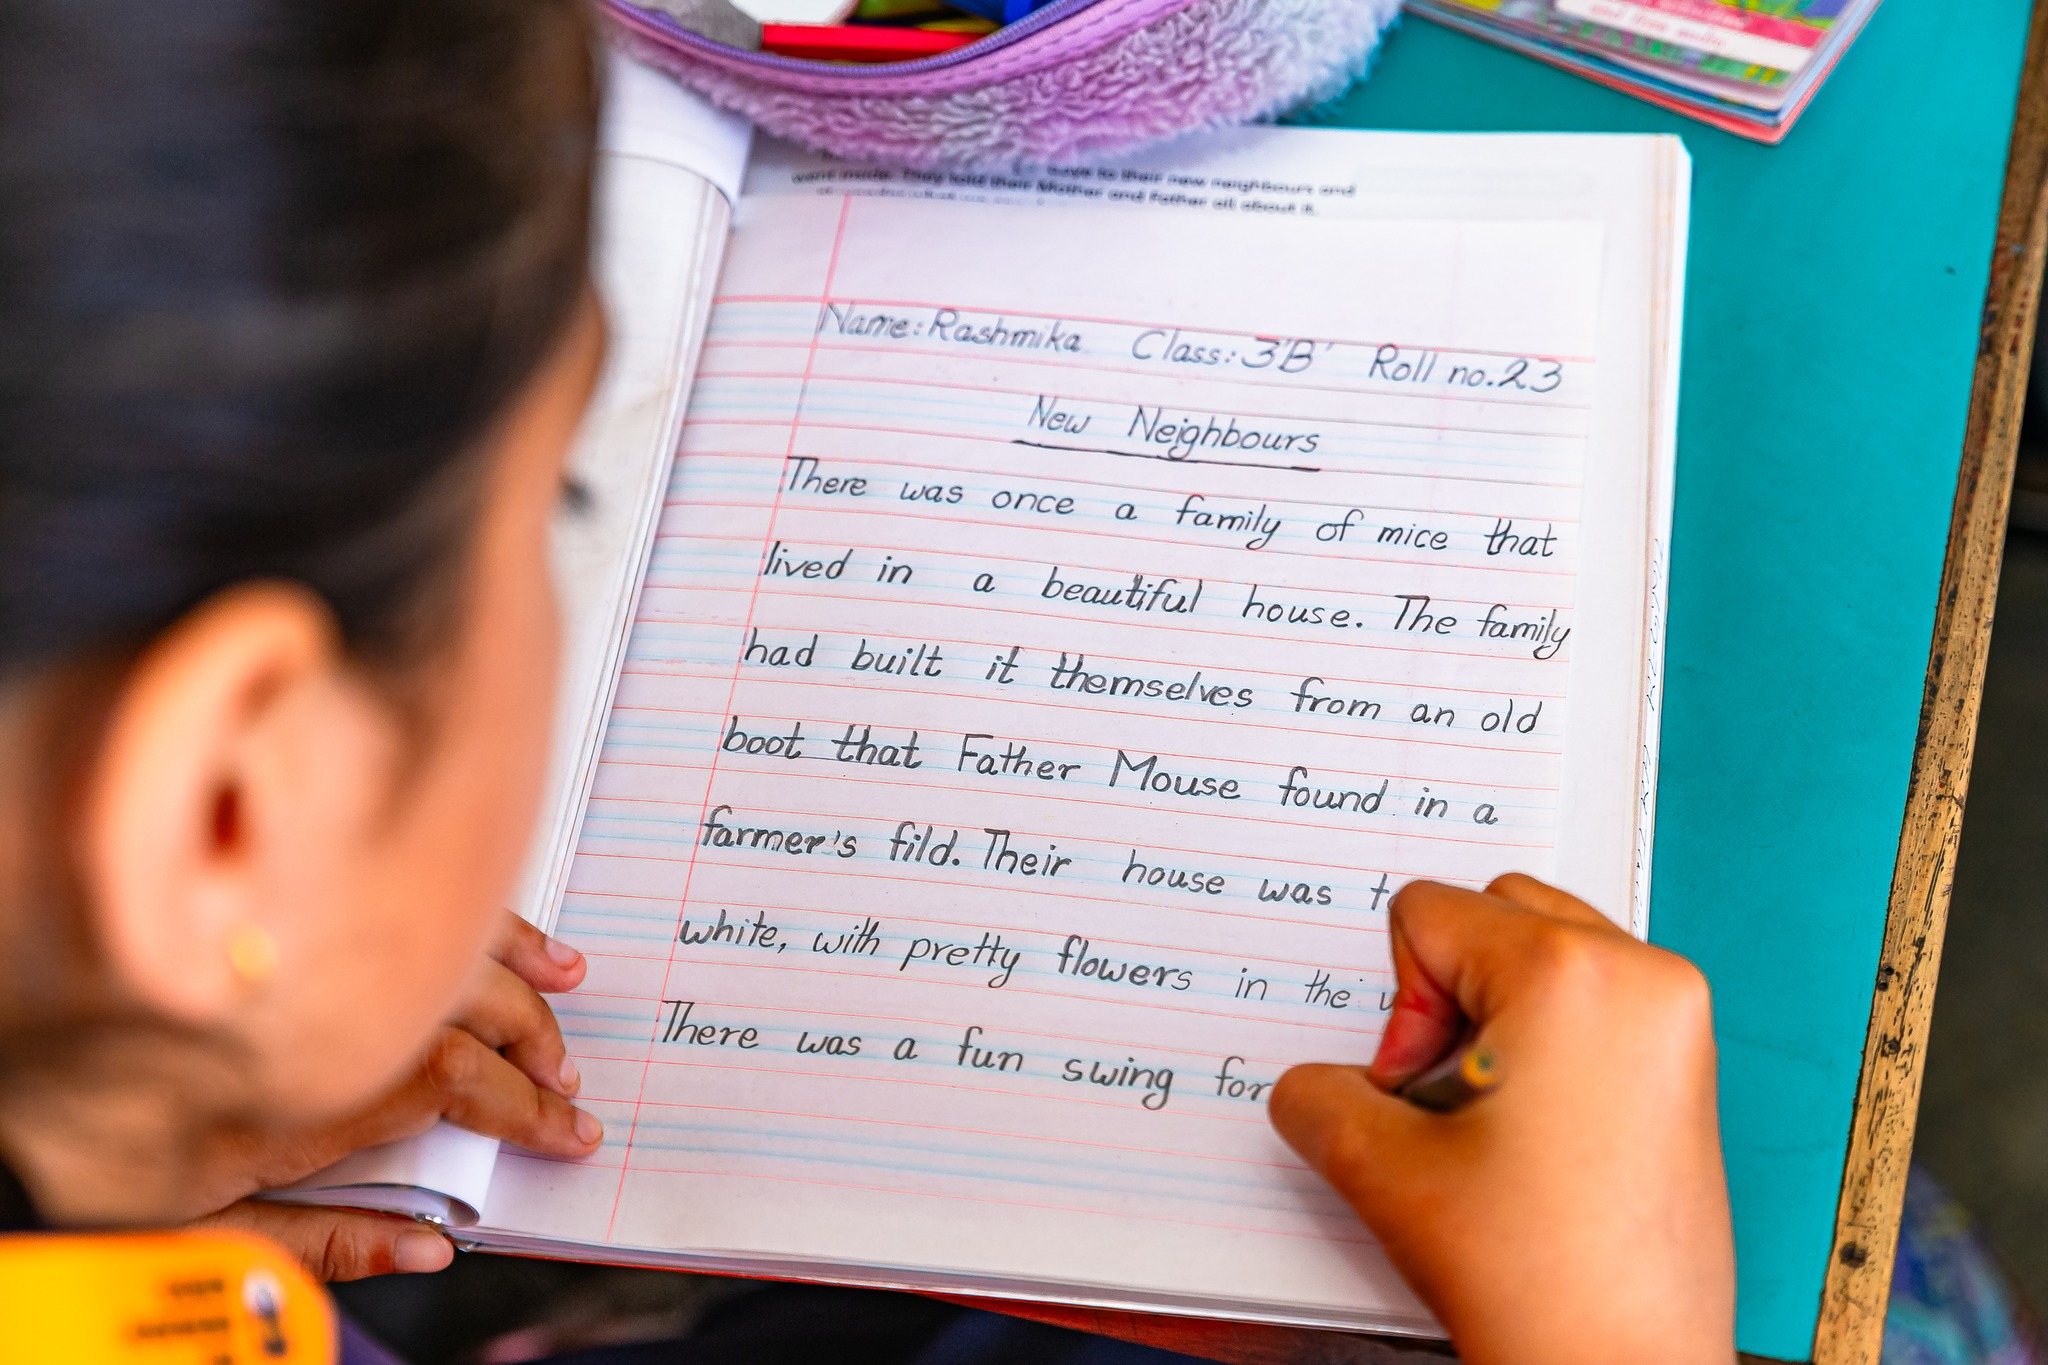 boys to their new neighbours and
went inside. They told their Mother and Father all about it.
Name: Rashmika Class: 3'B' Roll no. 23
New Neighbours
There was once a family of mice that
lived in a beautiful house. The family
had built it themselves from an old
boot that Father Mouse found in a
farmer's fild. Their house was
white, with pretty flowers in the
There was a fun swing for